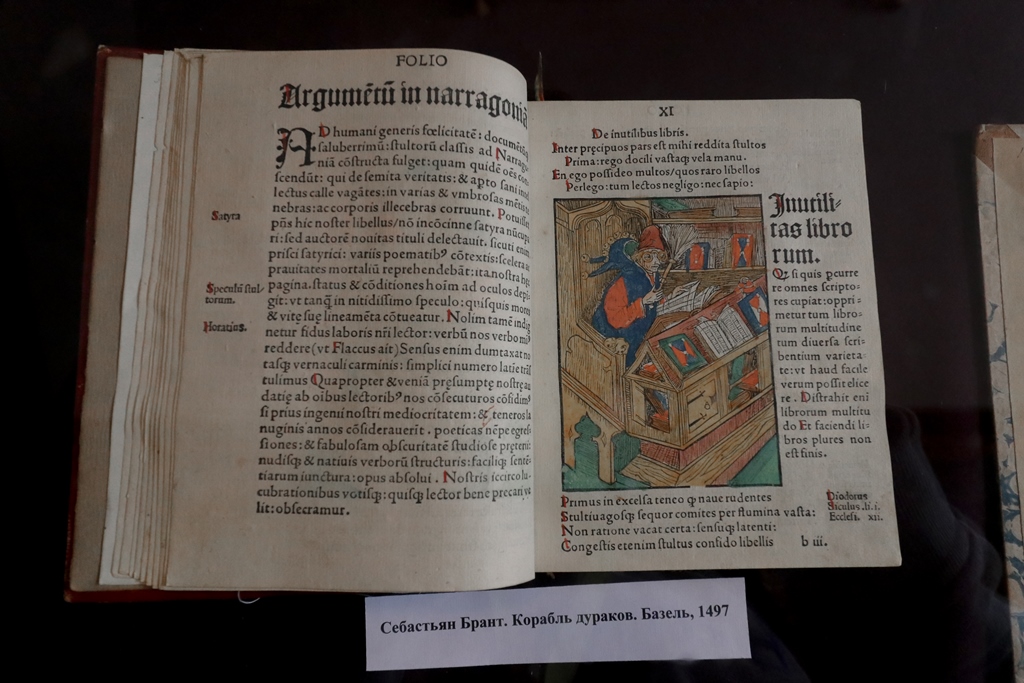 FOLIO
Argumẽtũ in narragoniã
AD humani generis fœlicitatẽ: documẽtũq
saluberrimũ: stultorũ classis ad Narrago
niã cõstructa fulget: quam quidẽ oẽs con
scendũt: qui de semita veritatis: & apto sani intel
lectus calle vagãtes: in varias & vmbrosas mẽtis te
nebras: ac corporis illecebras corruunt. Potuisset
Satyra
pñs hic noster libellus/ nõ incõcinne satyra nũcupa
ri: sed auctorẽ nouitas tituli delectauit. sicuti enim
prisci satyrici: variis poematibꝰ cõtextis: scelera ac
prauitates mortaliũ reprehendebãt: ita nostra hęc
Speculũ stul-
torum.
pagina. status & cõditiones hoim ad oculos depin
git: vt tanq̃ in nitidissimo speculo: quisquis mores
& vitę suę lineamẽta cõtueatur. Nolim tamẽ indig
Horatius.
netur fidus laboris nr̃i lector: verbũ nos verbo mi
reddere (vt Flaccus ait) Sensus enim dumtaxat no
tas vernaculi carminis: simplici numero latie trãs
tulimus Quapropter & veniã pręsumptę nostrę au
datię ab oibus lectoribꝰ nos cõsecuturos cõfidim
si prius ingenii nostri mediocritatem: & teneros la
nuginis annos cõsiderauerit. poeticas nẽpe egres
siones: & fabulosam obscuritatẽ studiose pręterii:
nudisq; & natiuis verborũ structuris: faciliq; sentẽ
tiarum iunctura: opus absolui. Nostris iccirco lu
cubrationibus votisq: quisq; lector bene precari ve
lit: obsecramur.
XI
De inutilibus libris.
Inter pręcipuos pars est mihi reddita stultos
Prima: rego docili vastaq; vela manu.
En ego possideo multos/ quos raro libellos
Perlego: tum lectos negligo: nec sapio:
Inutili-
tas libro
rum.
Qui si quis pcurre
re omnes scripto-
res cupiat: oppri-
metur tum libro-
rum multitudine
tum diuersa scri-
bentium varieta-
te: vt haud facile
verum possit elice
re. Distrahit eni
librorum multitu
do Et faciendi li-
bros plures non
est finis.
Primus in excelsa teneo q̃ naue rudentes
Stultiuagosq; sequor comites per flumina vasta:
Non ratione vacat certa: sensuq; latenti:
Congestis etenim stultus confido libellis
Diodorus
Siculus .li. i.
Ecclesi. xii.
b iii.
Себастьян Брант. Корабль дураков. Базель, 1497